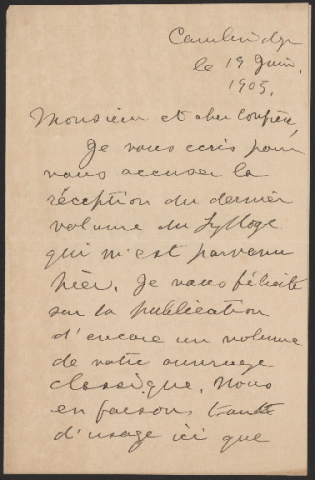 Cambridge
le 19 Juin,
1905.
Monsieur et cher confrère,
Je vous ecris pour
vous accuser la
réception du dernier
volume du Sylloge
qui m'est parvenu
hier. Je vous félicite
sur la publication
d'encore un volume
de votre ouvrage
classique. Nous
en faisons tant
d'usage ici que